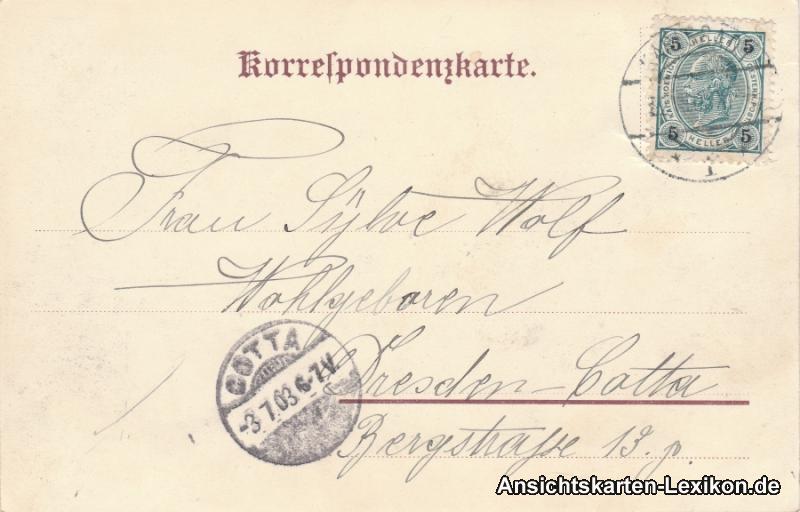 Korrespondenzkarte.
5 HELLER 5
5 HELLER 5
Frau Sÿlve Wolf
Wohlgeboren
Dresden-Cotta
Bergstraße 13. p.
COTTA
-3.7.03.6-7V
Ansichtskarten-Lexikon.de